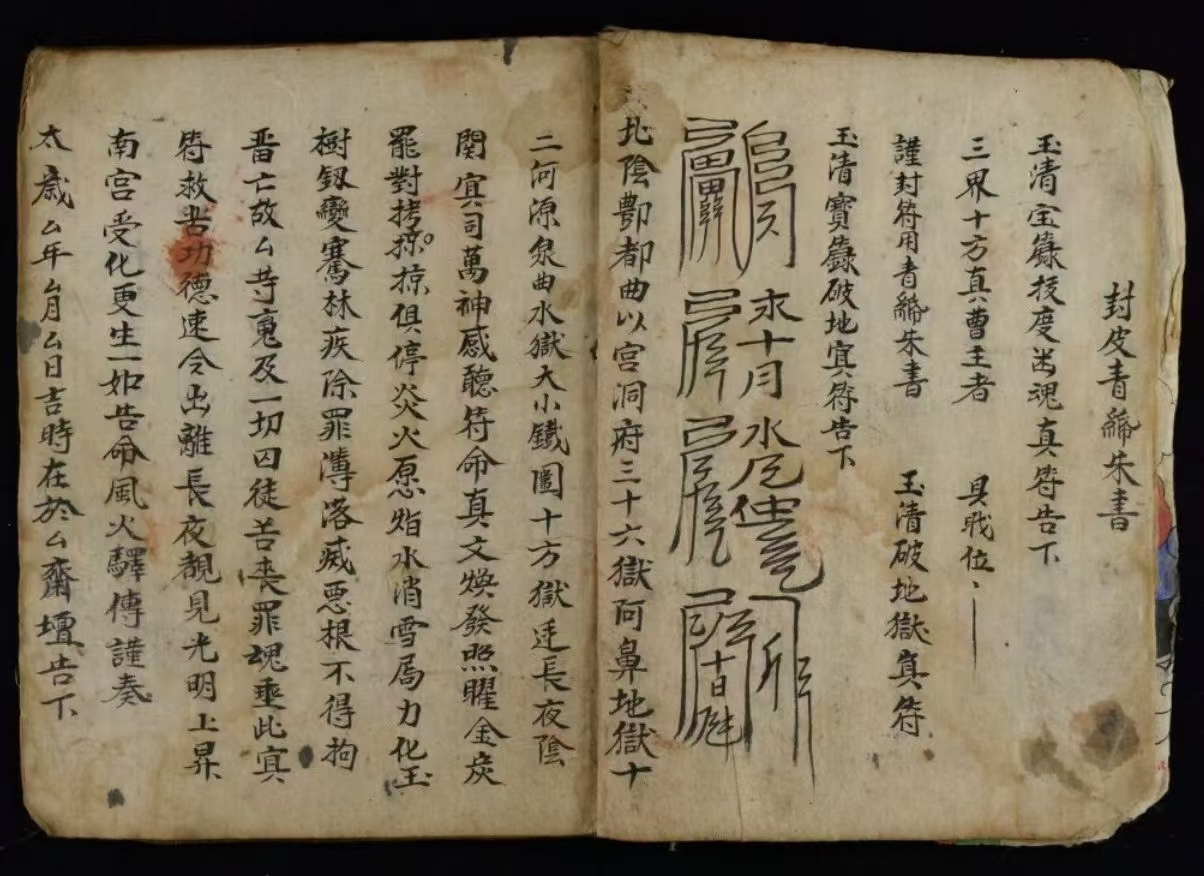 封皮青締朱書
玉清宝籙技度凼魂真符告下
三界十方真曹王者 具戝位
謹封符用青締朱書 玉清破地獄真符
玉清寶籙破地冥符告下
北陰酆都曲以宮洞府三十六獄阿鼻地獄十
二河源泉曲水獄大小鐵圍十方獄迋長夜陰
関冥司萬神感聴符命真文煥發照曜金炭
罷對拷掠掠俱停炎火愿熖水消雪局力化玉
樹釼變騫林疾除罪薄落威悪根不得拘
晋亡故厶䒭䰟及一切囚徒苦喪罪魂垂此冥
符救苦功德速令出離長夜覩見光明上昇
南宮受化更生一如告命風火驛傳謹奏
太歲厶年厶月厶日吉時在於厶齋壇告下